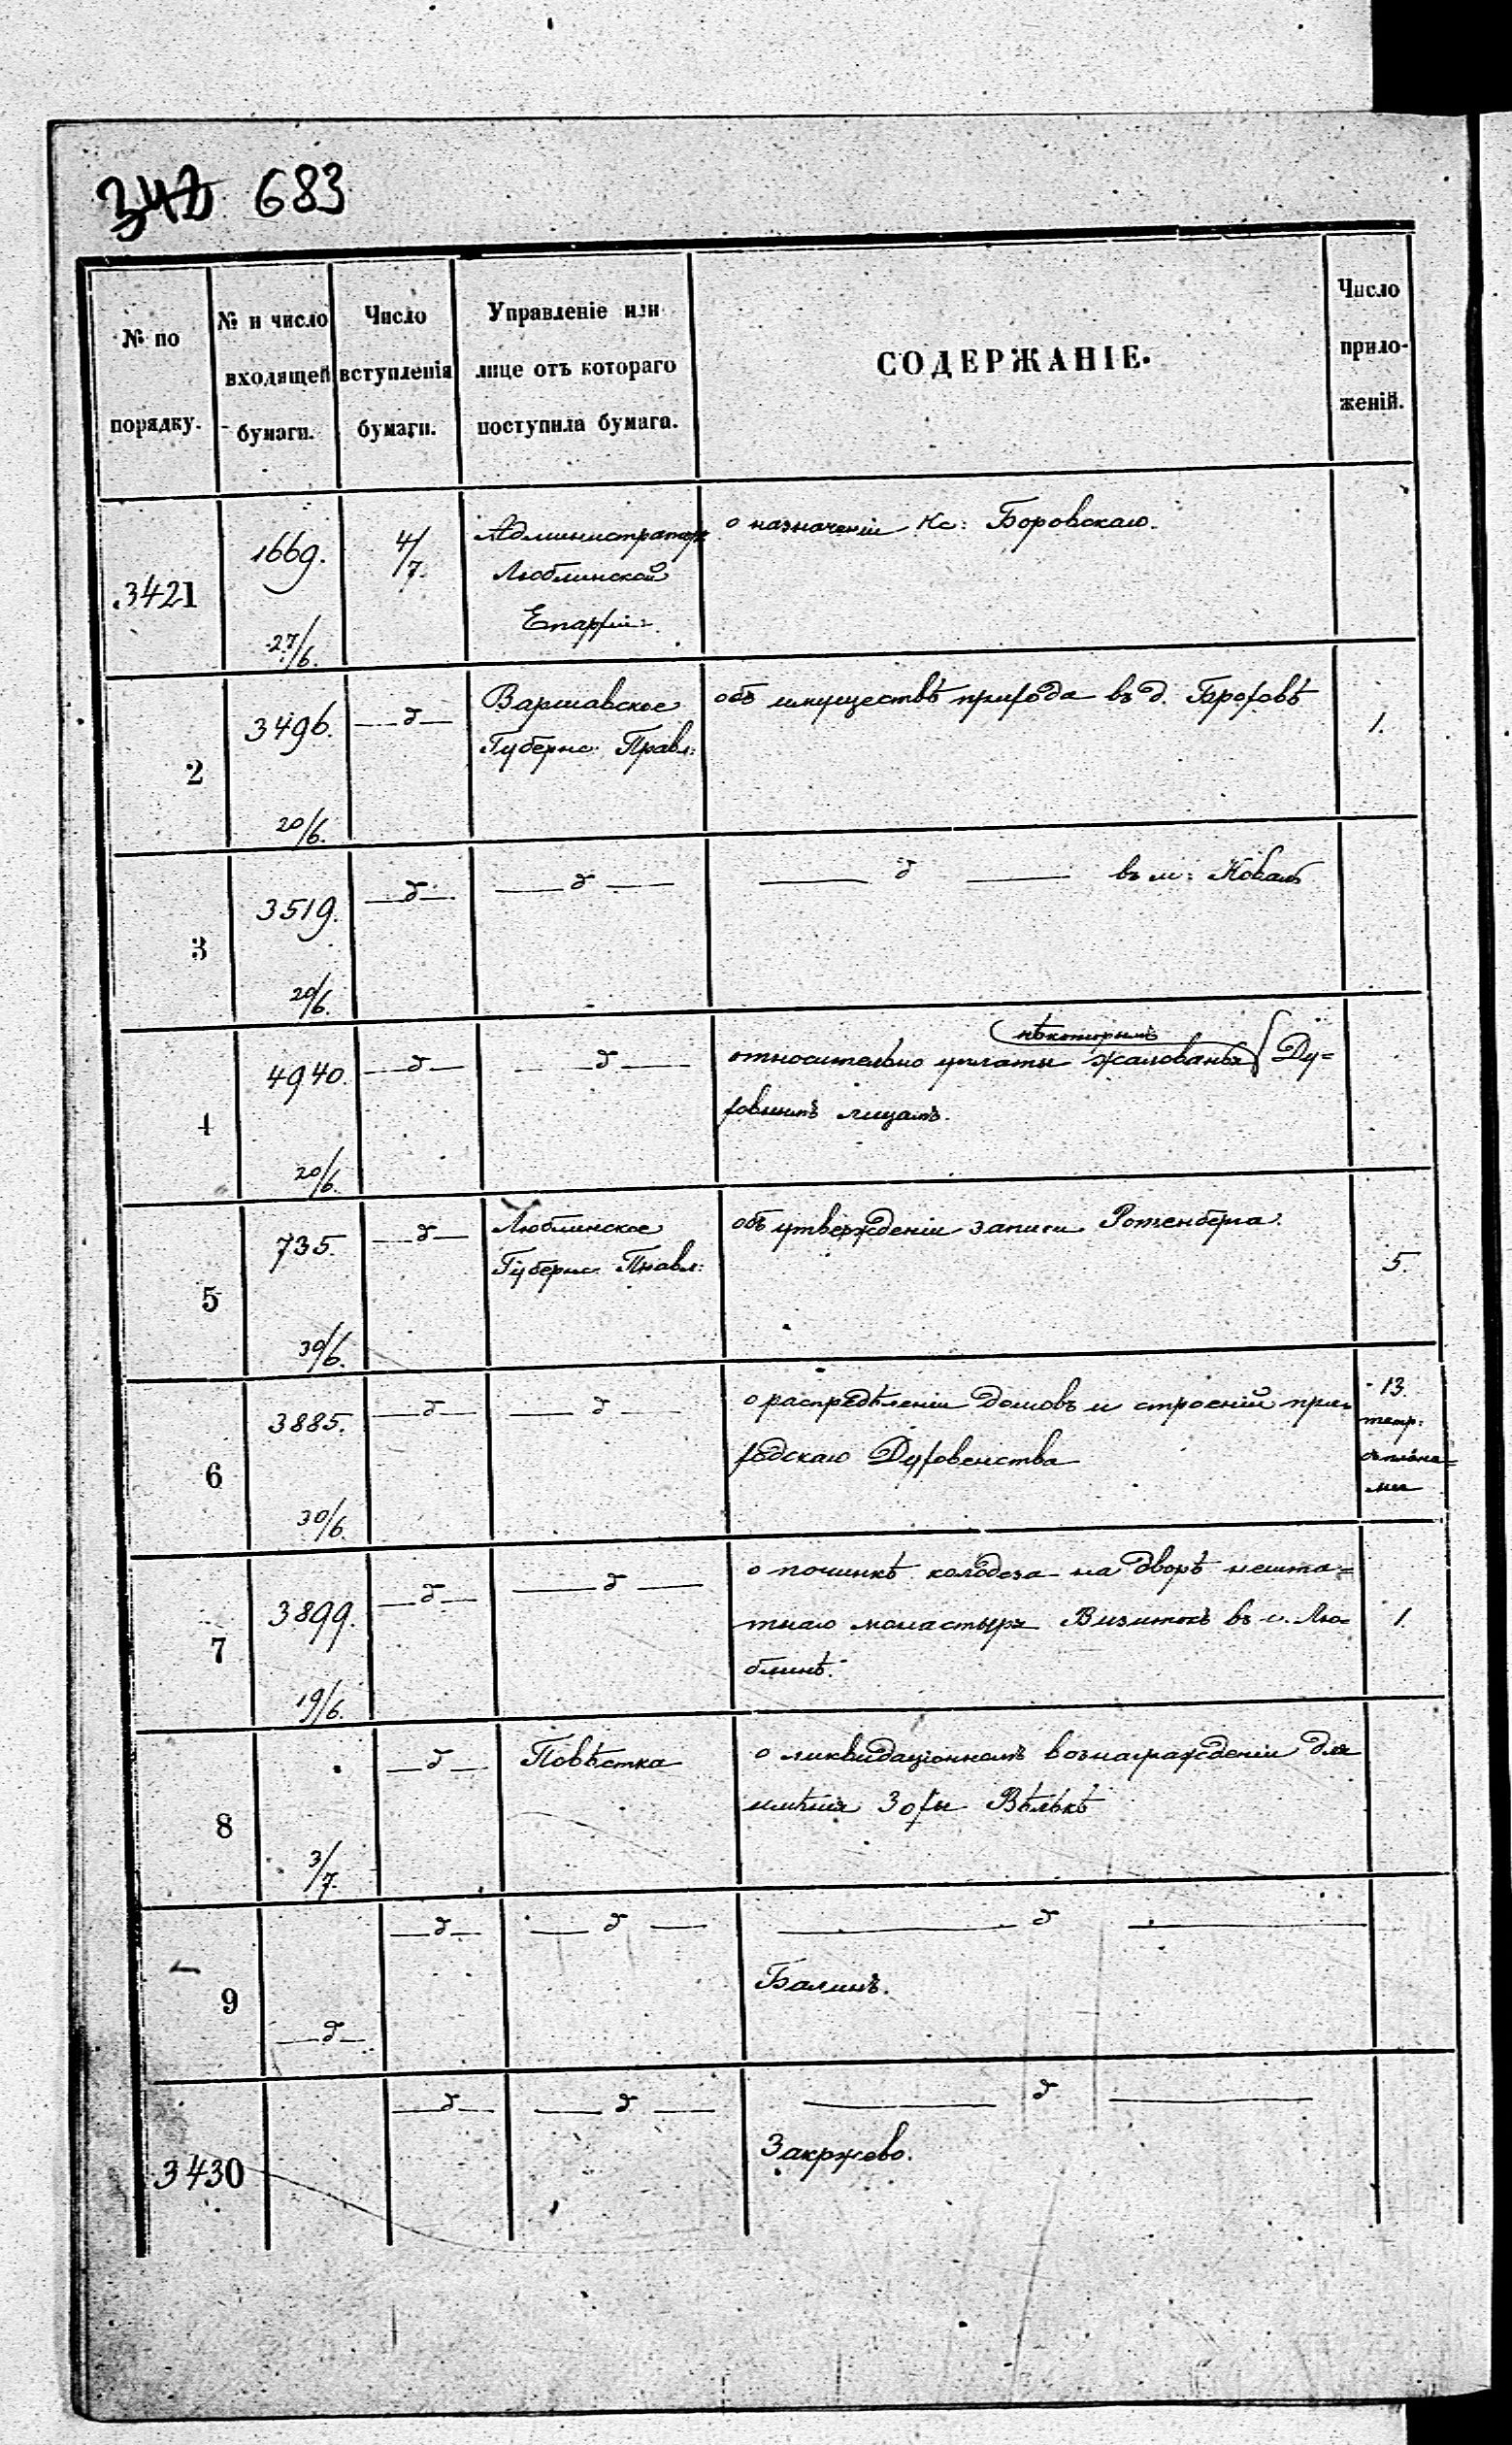 683
№ по порядку.
№ и число входящей бумаги.
Число вступленія бумаги.
Управленіе или лице отъ котораго поступила бумага.
СОДЕРЖАНІЕ.
Число приложеній.
3421
1669.
27/6.
4/7.
Администраторъ
Люблинской
Епархіи
о назначеніи Кс: Боровскаго.
2
3496.
20/6.
—д—
Варшавское
Губернс. Правл:
объ имуществѣ прихода въ д. Броховѣ
1.
3
3519.
20/6.
—д—
—д—
—д— въ м: Коваль
4
4940.
20/6.
—д—
—д—
нѣкоторымъ
относительно уплаты жалованья Ду=
ховнымъ лицамъ.
5
735.
30/6.
—д—
Люблинское
Губернс. Правл:
объ утвержденіи записи Ротенберга.
5.
6
3885.
30/6.
—д—
—д—
о распредѣленіи домовъ и строеній при=
ходскаго Духовенства
13.
тетр.
7
3899.
19/6.
—д—
—д—
о починкѣ колодеза на дворѣ нешта=
тнаго монастыря Визитокъ въ г. Лю=
блинѣ.
1.
8
3/7.
—д—
Повѣстка
о ликвидаціонномъ вознагражденіи для
имѣнія Зохы Вѣлькѣ
9
—д—
—д—
—д—
—д—
Балинъ.
3430
—д—
—д—
—д—
Закржево.